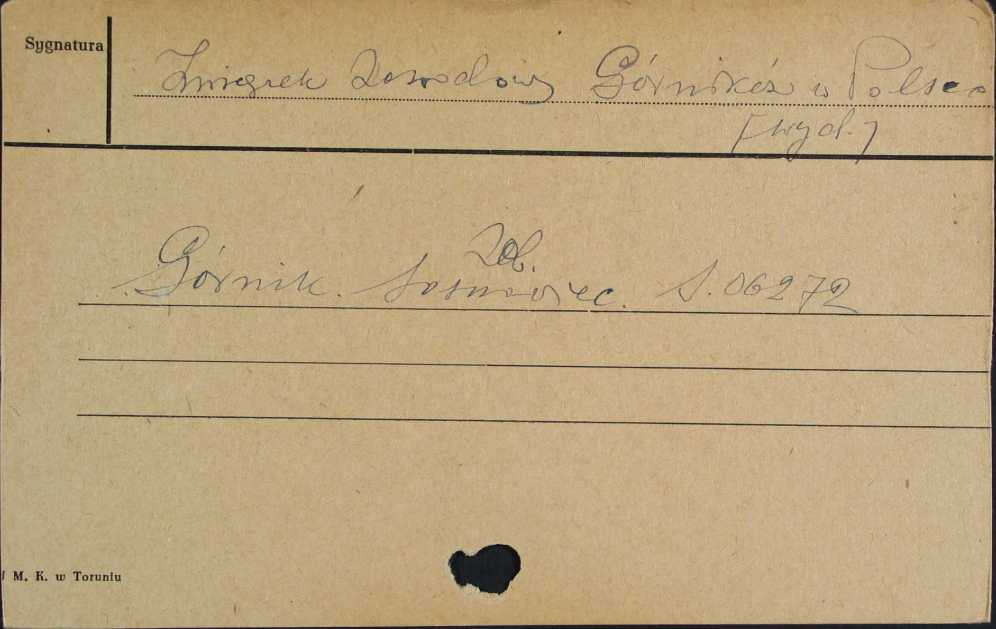 Sygnatura
Związek Zawodowy Górników w Polsce
[wyd.]
Zob.
Górnik. Sosnowiec. S.06272
M. K. w Toruniu